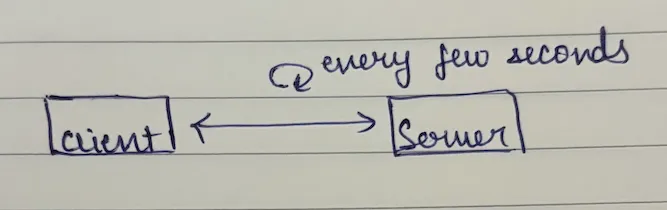 every few seconds
client
Server